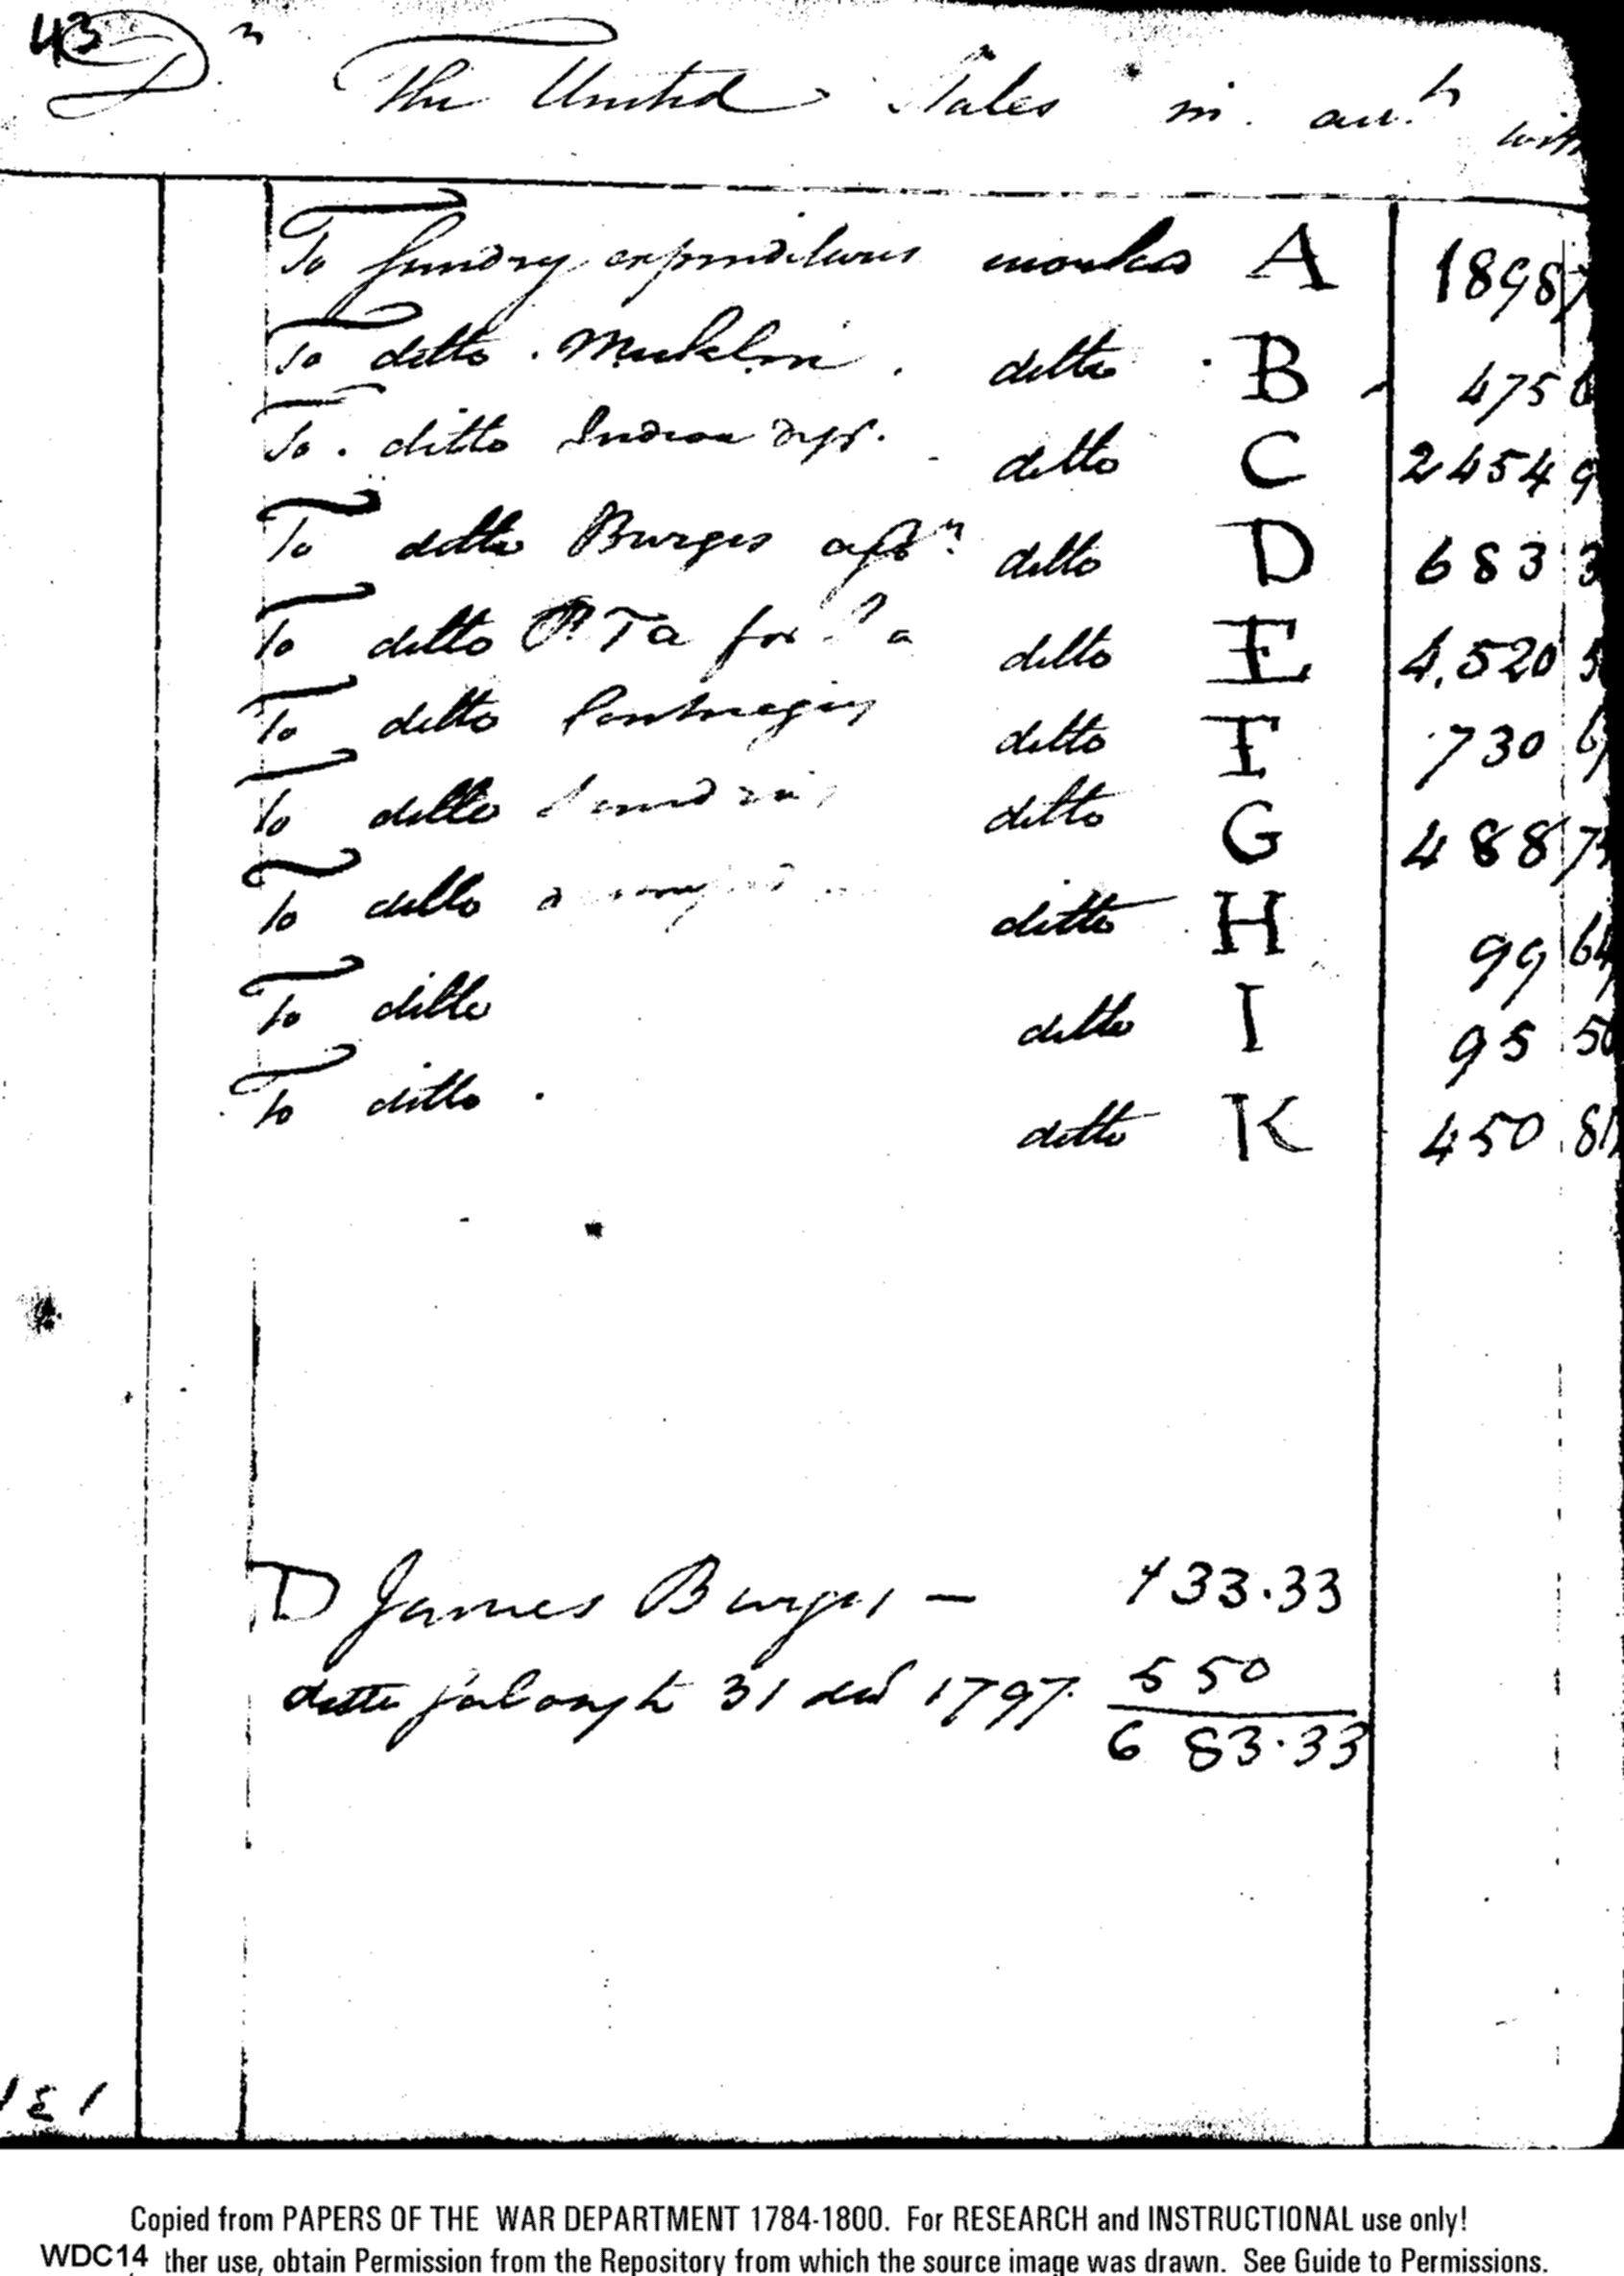 43
Dr The United States in acct with
To Sundry expenditures marked A 1898 7
To ditto ditto B 475 6
To ditto Indian Dept. ditto C 2454 9
To ditto Burges ditto D 683 3
To ditto for ditto E 4,520 5
To ditto Contingens ditto F 730 6
To ditto Sundries ditto G 488 7
To ditto ditto H 99 64
To ditto ditto I 95 50
To ditto ditto K 450 81
D James Burges — 133.33
ditto 31 decr 1797. 550
683.33
Copied from PAPERS OF THE WAR DEPARTMENT 1784-1800. For RESEARCH and INSTRUCTIONAL use only!
WDC14 ther use, obtain Permission from the Repository from which the source image was drawn. See Guide to Permissions.